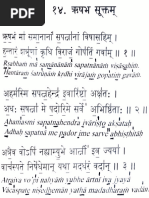 १४. ऋषभ सूक्तम्
ऋषभं मां समानानां सपत्नानां विषासहिम् ।
हन्तारं शत्रूणां कृधि विराजं गोपतिं गवाम् ॥ १ ॥
Rṣabham māṁ samānānāṁ sapatnānāṁ viṣāsahim
Hantāraṁ śatrūṇāṁ kṛdhi virājaṁ gopatiṁ gavām
अहमस्मि सपत्नहेन्द्र इवारिष्टो अक्षतः ।
अधः सपत्ना मे पदोरिमे सर्वे अभिष्ठिताः ॥ २ ॥
Ahamasmi sapatnahendra ivāriṣṭo akṣataḥ
Adhaḥ sapatnā me padorime sarve abhiṣṭhitāḥ
अत्रैव वोऽपि नह्याम्युभे आर्त्नी इव ज्यया ।
वाचस्पते निषेधेमान् यथा मदधरं वदान् ॥ ३ ॥
Vācaspate niṣedhemān yathā madadharaṁ vadān